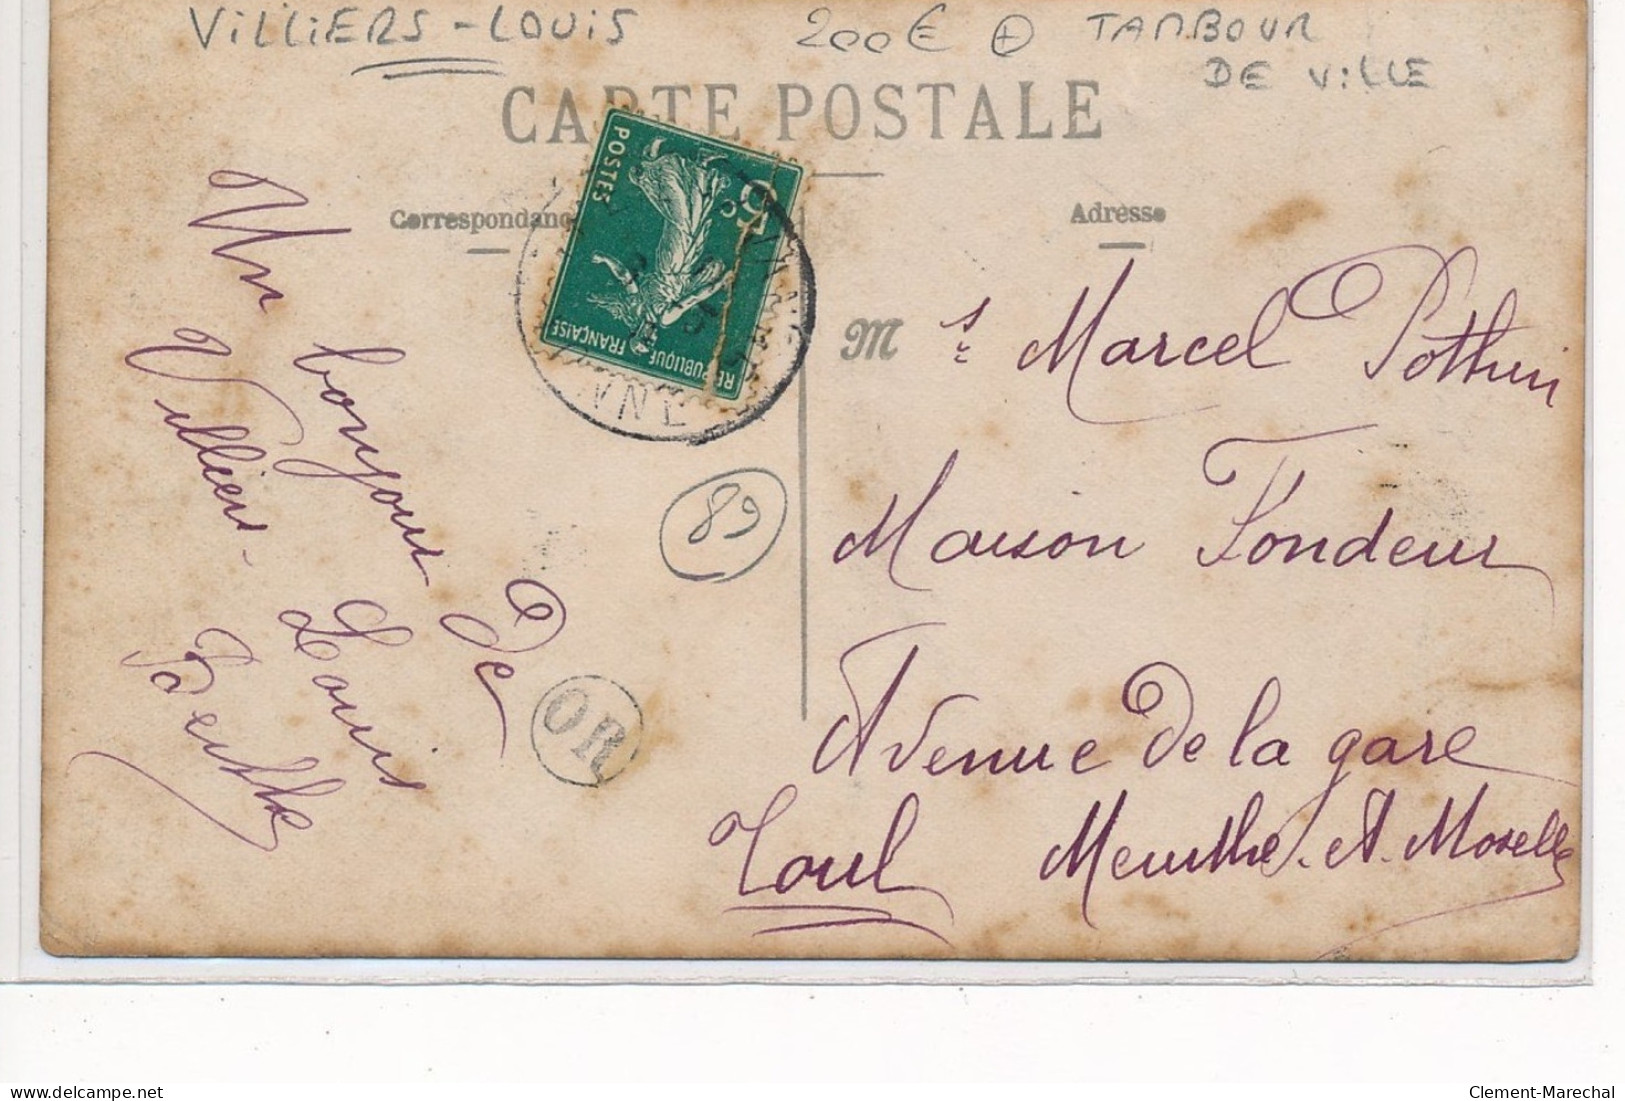 VILLIERS-LOUIS 200€ + TAMBOUR
DE VILLE
CARTE POSTALE
Correspondance
Adresse
POSTES
5c
REPUBLIQUE FRANÇAISE
Un bonjour de
Villiers-Louis
Berthe
89
OR
M s Marcel Pothuin
Maison Fondeur
Avenue De la gare
Toul Meurthe. et. Moselle
delcampe.net
Clement-Marechal